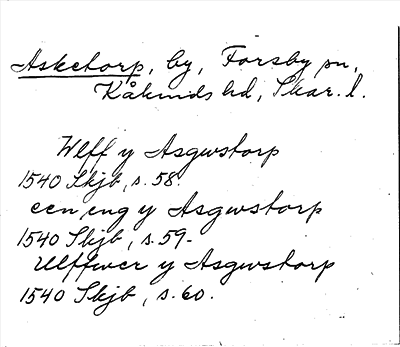 Asketorp, by, Forsby sn,
Kåkinds hd, Skar. l.
Wlff y Asgwstorp
1540 Skjb, s. 58.
een eng y Asgwstorp
1540 Skjb, s. 59.
Ulffwer y Asgwstorp
1540 Skjb, s. 60.